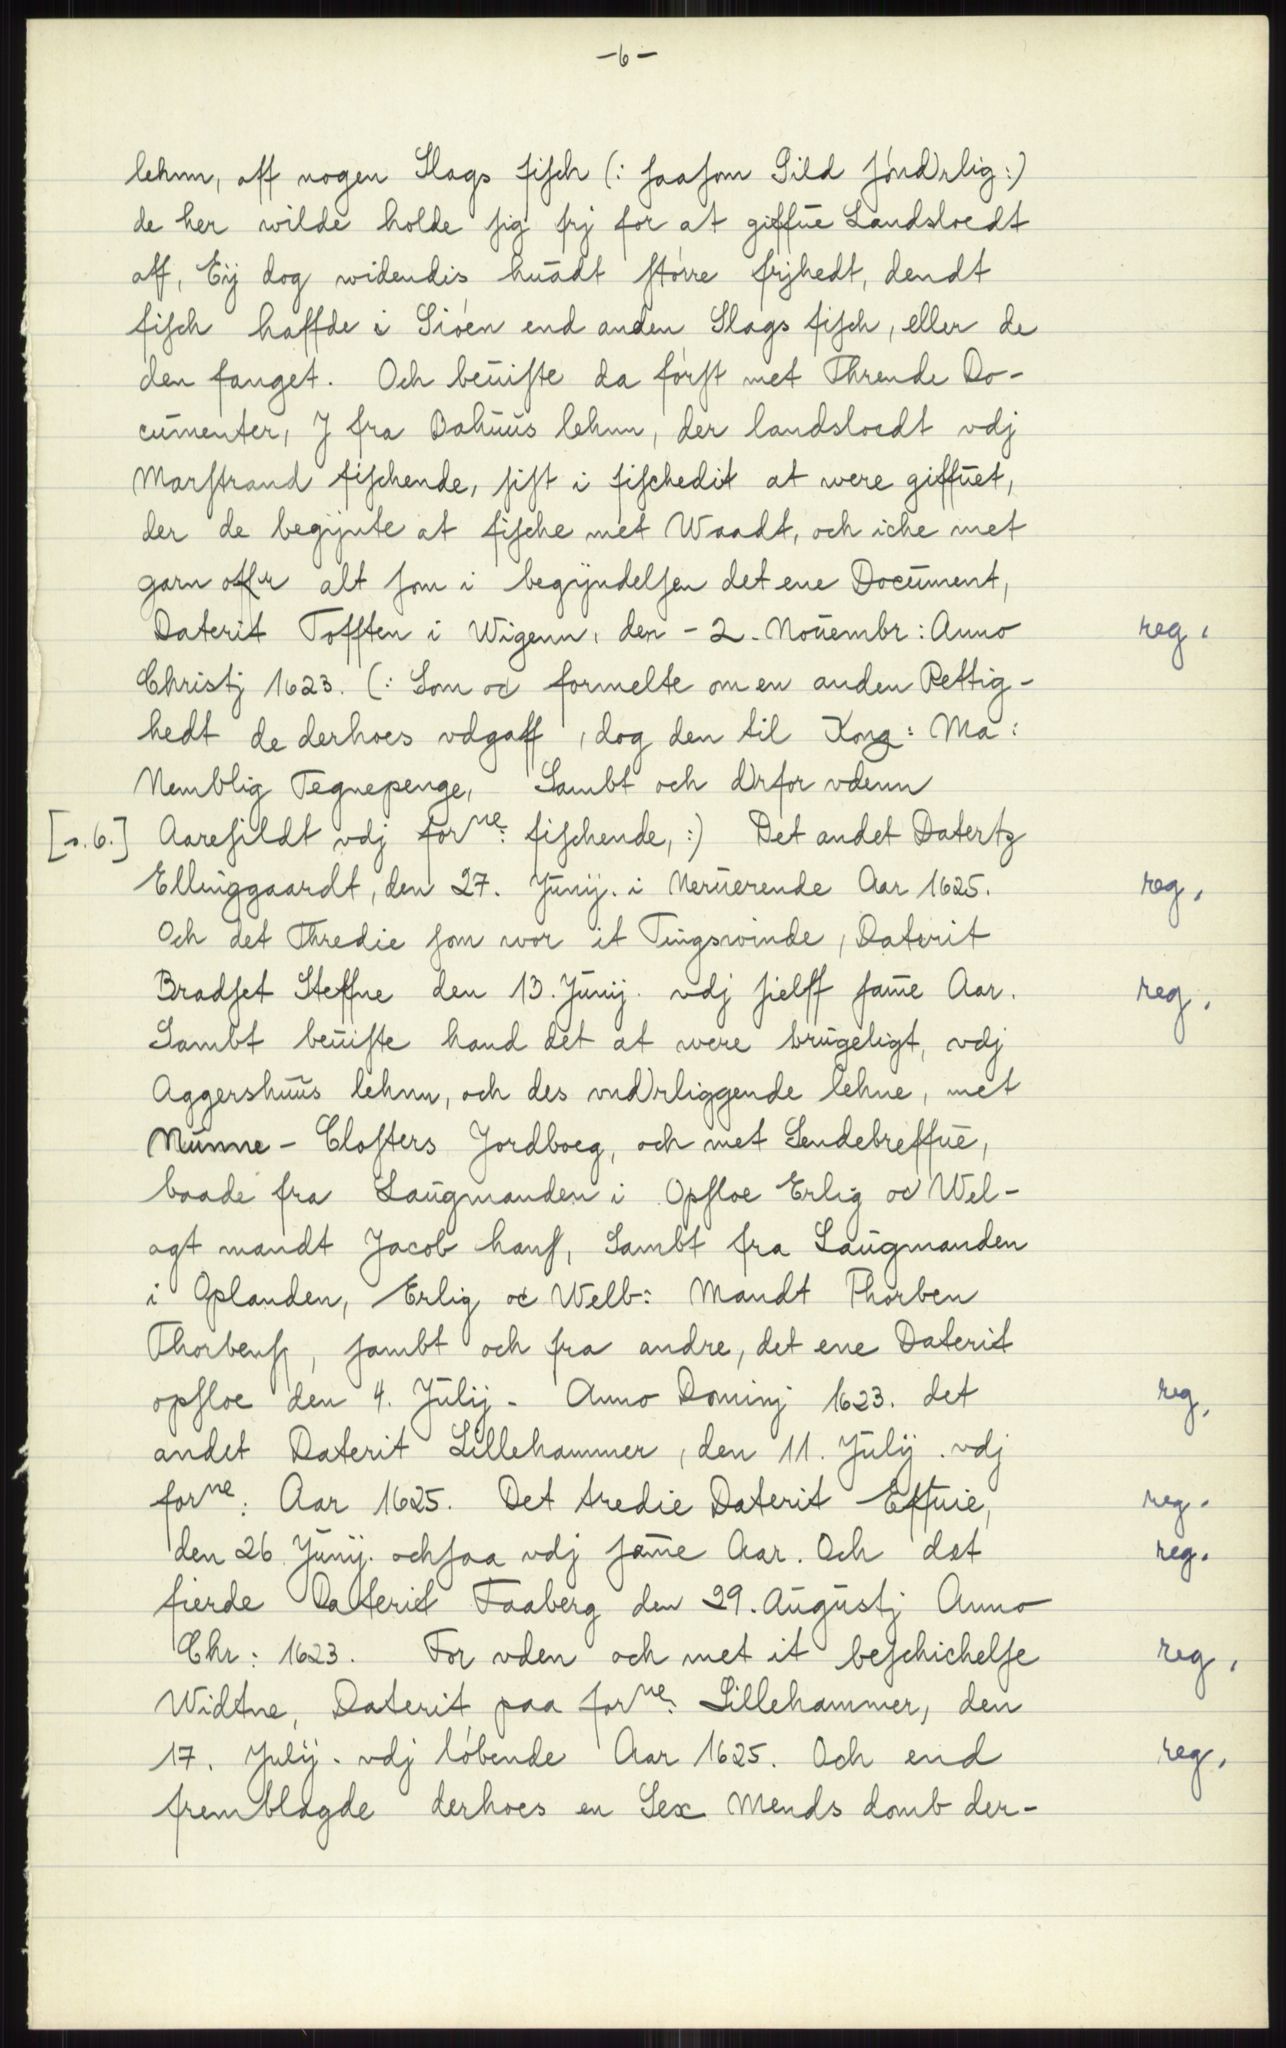 -6-
lehnn, aff nogen Slags fisch (: saasom Sild sóndrlig :)
de her wilde holde sig frj for at giffue Landsloedt
aff, Eij dog widendis huadt stórre frijhedt, dendt
fisch haffde i Sióen end anden Slags fisch, eller de
den fanget. Och beuiste da fórst met Thrende Do-
cumenter, J fra Bahuus lehnn, der landsloedt vdj
Marstrand fischende, sist i fischedit at were giffuet,
der de begijnte at fische met Waadt, och iche met
garn offr alt som i begijndelsen det ene Document,
Daterit Tofften i Wigenn, den - 2. Nouembr: Anno reg.
Christj 1623. (: Som oc formelte om en anden Rettig-
hedt de derhoes vdgaff, dog den til Kong: Ma:
Nemblig Tegnepenge, Sambt och drfor vdenn
[s. 6.] Aaresildt vdj forne: fischende, :) Det andet Datertz
Ellinggaardt, den 27. Junij. i Neruerende Aar 1625. reg.
Och det Thredie som wor it Tingswinde, Daterit
Bradset Steffne den 13. Junij. vdj sielff same Aar. reg.
Sambt beuiste hand det at were brugeligt, vdj
Aggershuus lehnn, och des vndrliggende lehne, met
Nunne - Closters Jordboeg, och met Sendebreffue,
baade fra Laugmanden i Opsloe Erlig oc Wel-
agt mandt Jacob hans, Sambt fra Laugmanden
i Oplanden, Erlig oc Welb: Mandt Thorben
Thorbens, sambt och fra andre, det ene Daterit
opsloe den 4. Julij - Anno Dominj 1623. det reg.
andet Daterit Lillehammer, den 11. Julij. vdj
forne: Aar 1625. Det tredie Daterit Effuie, reg.
den 26 Junij. ochsaa vdj same Aar. Och det reg.
fierde Daterit Faaberg den 29. Augustj Anno
Chr: 1623. For vden och met it beschichelse reg.
Widtne, Daterit paa forne: Lillehammer, den
17. Julij. vdj lóbende Aar 1625. Och end reg.
fremblagde derhoes en Sex Mends domb der-